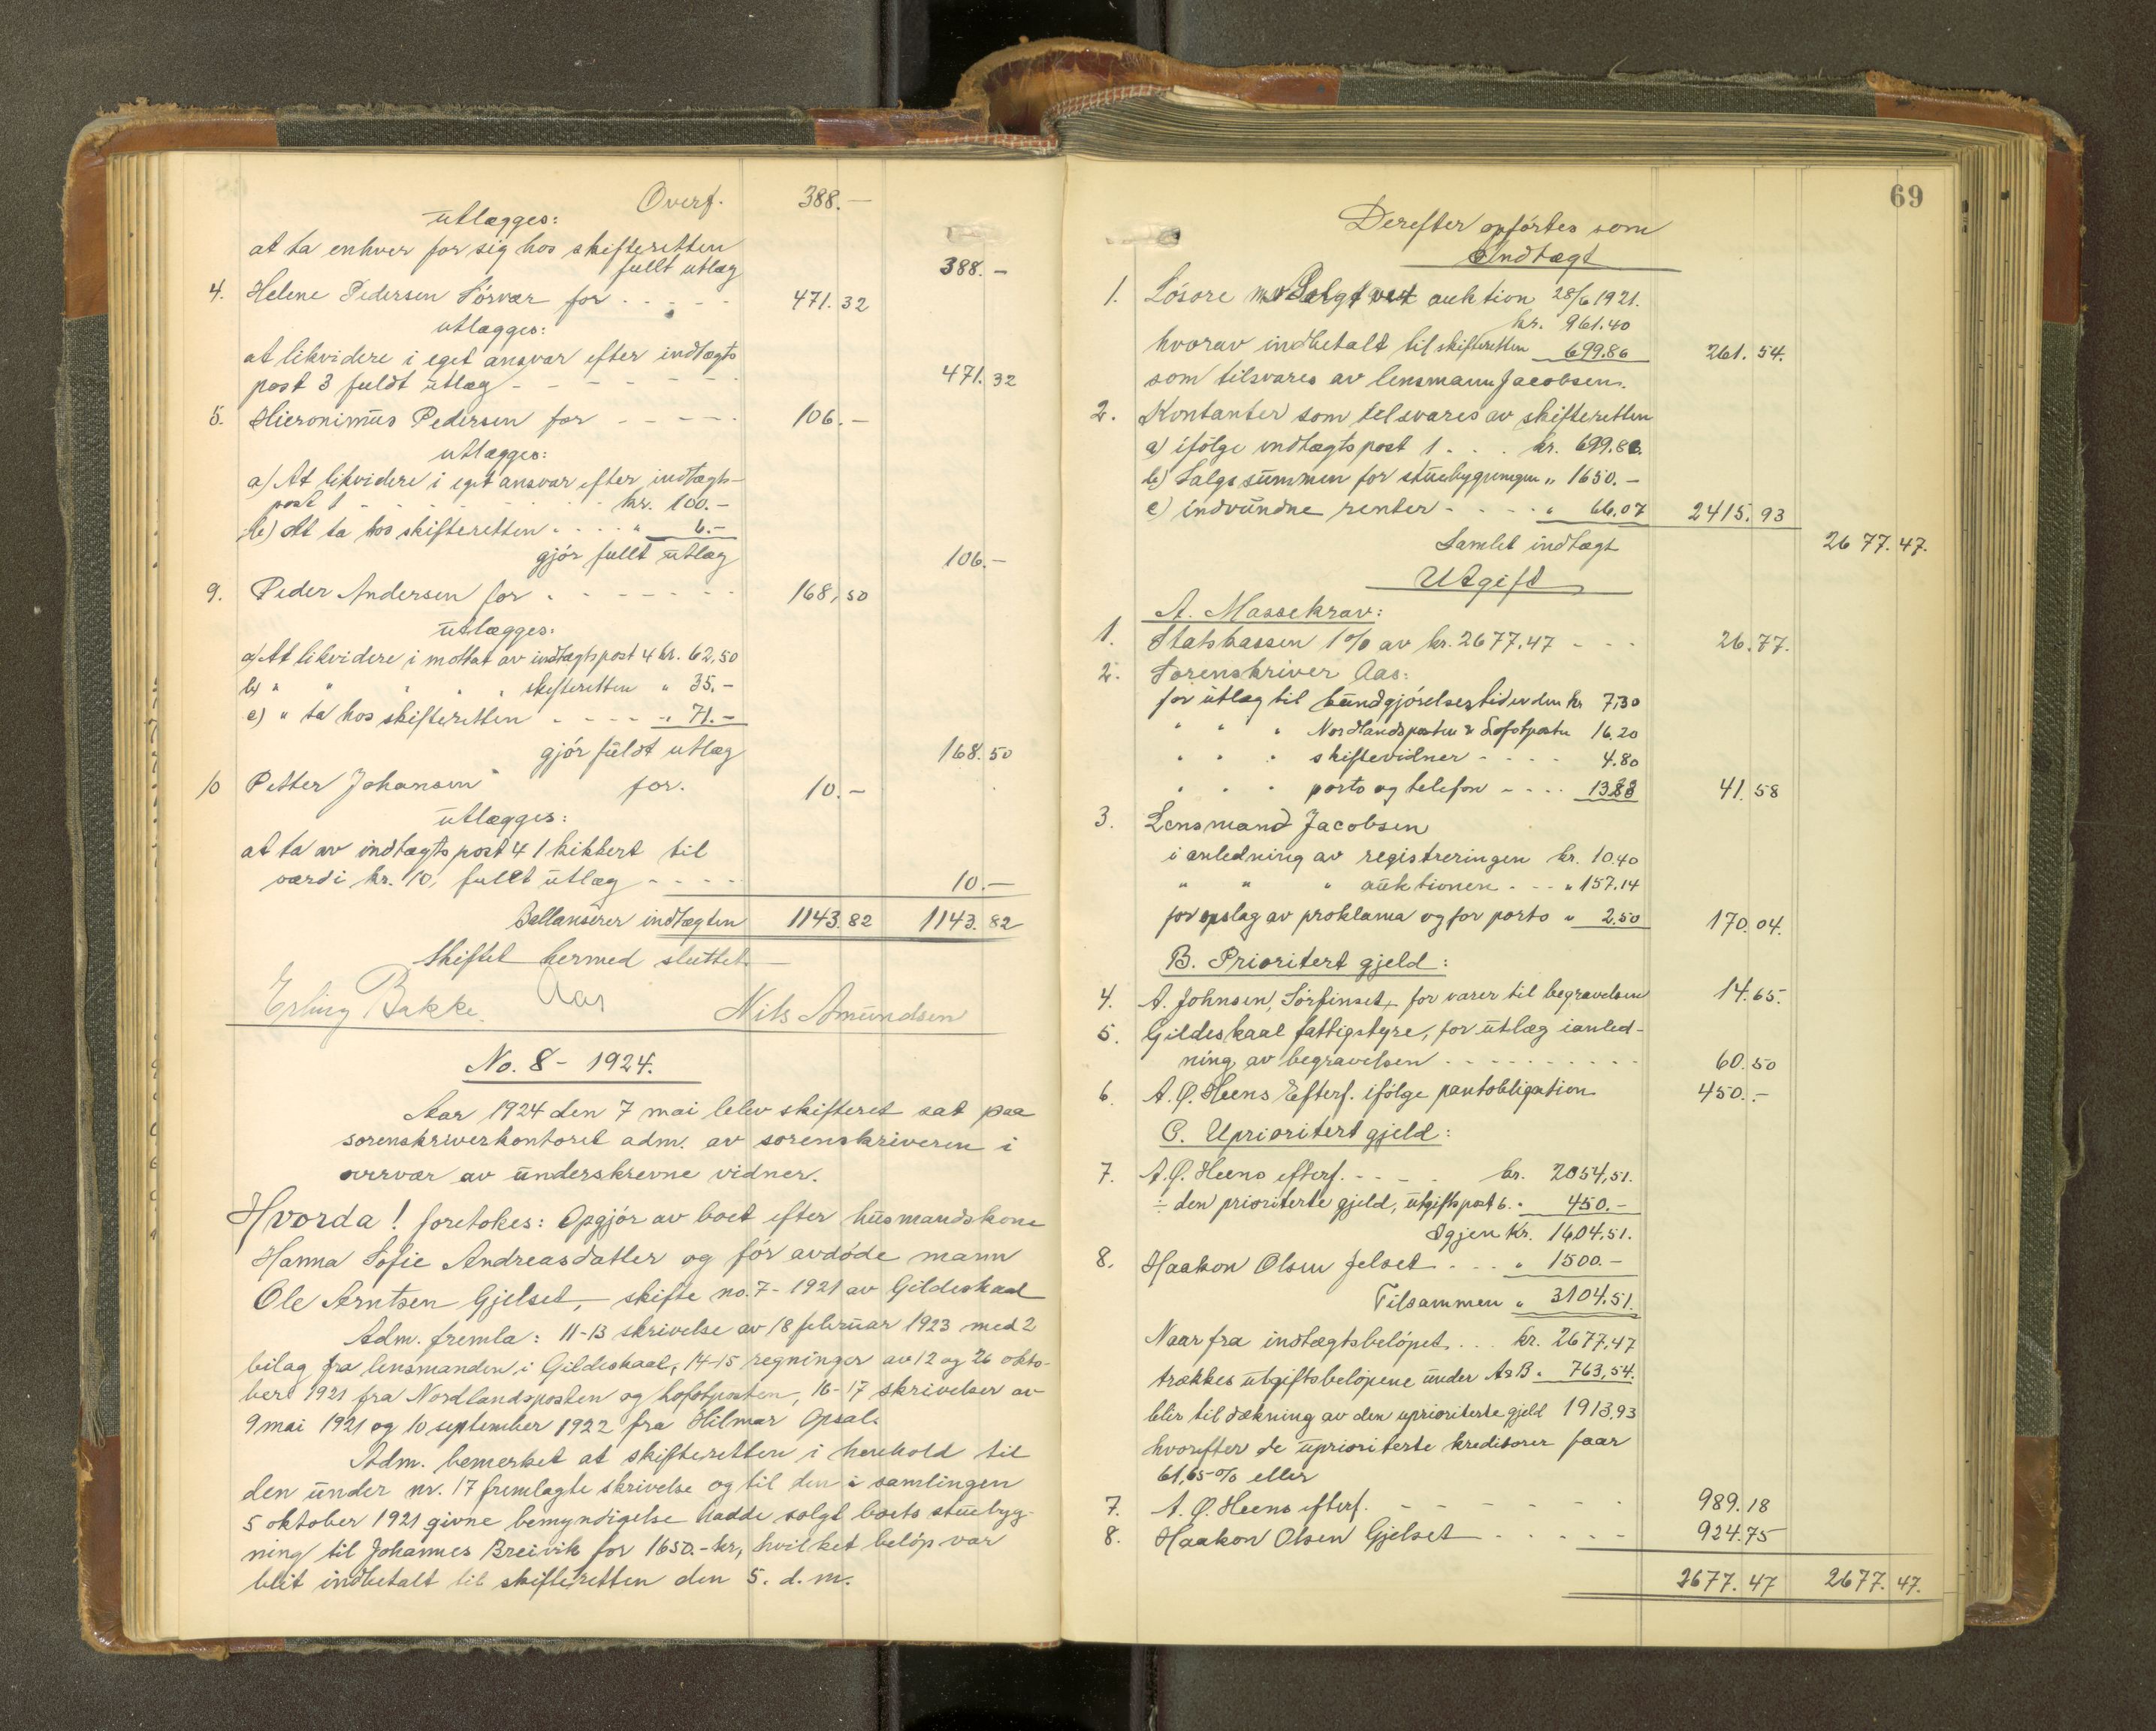 Overf. 388.—
utlægges:
at ta enhver for sig hos skifteretten
fullt utlæg 388.—
4. Helene Pedersen Sörvær for - - - - - 471.32
utlægges:
at likvidere i eget ansvar efter indtægts
post 3 fuldt utlæg - - - - - - 471.32
5. Hieronimus Pedersen for - - - - 106.—
utlægges:
a) At likvidere i eget ansvar efter indtægts-
post 1 - - - - - - kr. 100.—
b) At ta hos skifteretten - - - - " 6.—
gjör fullt utlæg 106.—
9. Peder Andersen for - - - - - - - 168,50
utlægges:
a) At likvidere i mottat av indtægtspost 4 kr. 62,50
b) " " " " " skifteretten " 35.—
c) " ta hos skifteretten - - - - - " 71.—
gjör fuldt utlæg 168.50
10 Petter Johansen for. 10.—
utlægges:
at ta av indtægts post 4 1 kikkert til
værdi kr. 10, fullt utlæg - - - - 10.—
Ballanserer indtægten 1143.82 1143.82
Skiftet hermed sluttet.
Erling Bakke. Aas Nils Amundsen
No. 8 - 1924.
Aar 1924 den 7 mai blev skifteret sat paa
sorenskriverkontoret adm. av sorenskriveren i
overvær av underskrevne vidner.
Hvorda! foretokes: Opgjör av boet efter husmandskone
Hanna Sofie Andreasdatter og för avdöde mann
Ole Arntsen Gjelset, - skifte no. 7 - 1921 av Gildeskaal
Adm. fremla: 11-13 skrivelse av 18 februar 1923 med 2
bilag fra lensmanden i Gildeskaal, 14-15 regninger av 12 og 26 okto-
ber 1921 fra Nordlandsposten og Lofotposten, 16-17 skrivelser av
9 mai 1921 og 10 september 1922 fra Hilmar Opsal.
Adm. bemerket at skifteretten i henhold til
den under nr. 17 fremlagte skrivelse og til den i samlingen
5 oktober 1921 givne bemyndigelse hadde solgt boets stuebyg-
ning til Johannes Breivik for 1650.- kr, hvilket belöp var
blit indbetalt til skifteretten den 5. d. m.
69
Derefter opförtes som
Indtægt
1. Lösöre m.v. Solgt ved auktion 28/6 1921.
kr. 961.40
hvorav indbetalt til skifteretten 699.86 261.54.
som tilsvares av lensmann Jacobsen.
2. Kontanter som tilsvares av skifteretten
a) ifölge indtægts post 1 . . . kr. 699.86.
b) Salgssummen for stuebygningen " 1650.—
c) indvundne renter - - - - " 66.07 2415.93
Samlet indtægt 2677.47.
Utgift
A. Massekrav:
1. Statskassen 1% av kr. 2677.47 - - - 26.77.
2. Sorenskriver Aas:
for utlæg til kundgjörelsestidenden kr 7,30
" " " Nordlandsposten & Lofotposten 16.20
" " " skiftevidner - - - - 4.80
" " " porto og telefon - - - - 13.28 41.58
3. Lensmand Jacobsen
i anledning av registreringen kr. 10.40
" " " auktionen - - - " 157.14
for opslag av proklama og for porto " 2,50 170.04.
B. Prioritert gjeld:
4. A. Johnsen, Sörfinset, for varer til begravelsen 14.65.
5. Gildeskaal fattigstyre, for utlæg i anled-
ning av begravelsen - - - - - - - - - - 60.50
6. A. Ø. Heens Efterf. ifölge pantobligation 450.—
C. Uprioritert gjeld:
7. A. Ø. Heens efterf. - - - - kr. 2054,51.
÷ den prioriterte gjeld, utgiftspost 6. " 450.—
Igjen kr. 1604,51.
8. Haakon Olsen Jelset . - - . " 1500.—
Tilsammen " 3104,51.
Naar fra indtægtsbelöpet . . . kr. 2677,47
trækkes utgiftsbelöpene under A & B " 763,54.
blir til dækning av den uprioriterte gjeld 1913,93
hvorefter de uprioriterte kreditorer faar
61,65% eller
7. A. Ø. Heens efterf. - - - - - - - 989.18
8. Haakon Olsen Gjelset - - - - - 924.75
2677.47 2677.47.